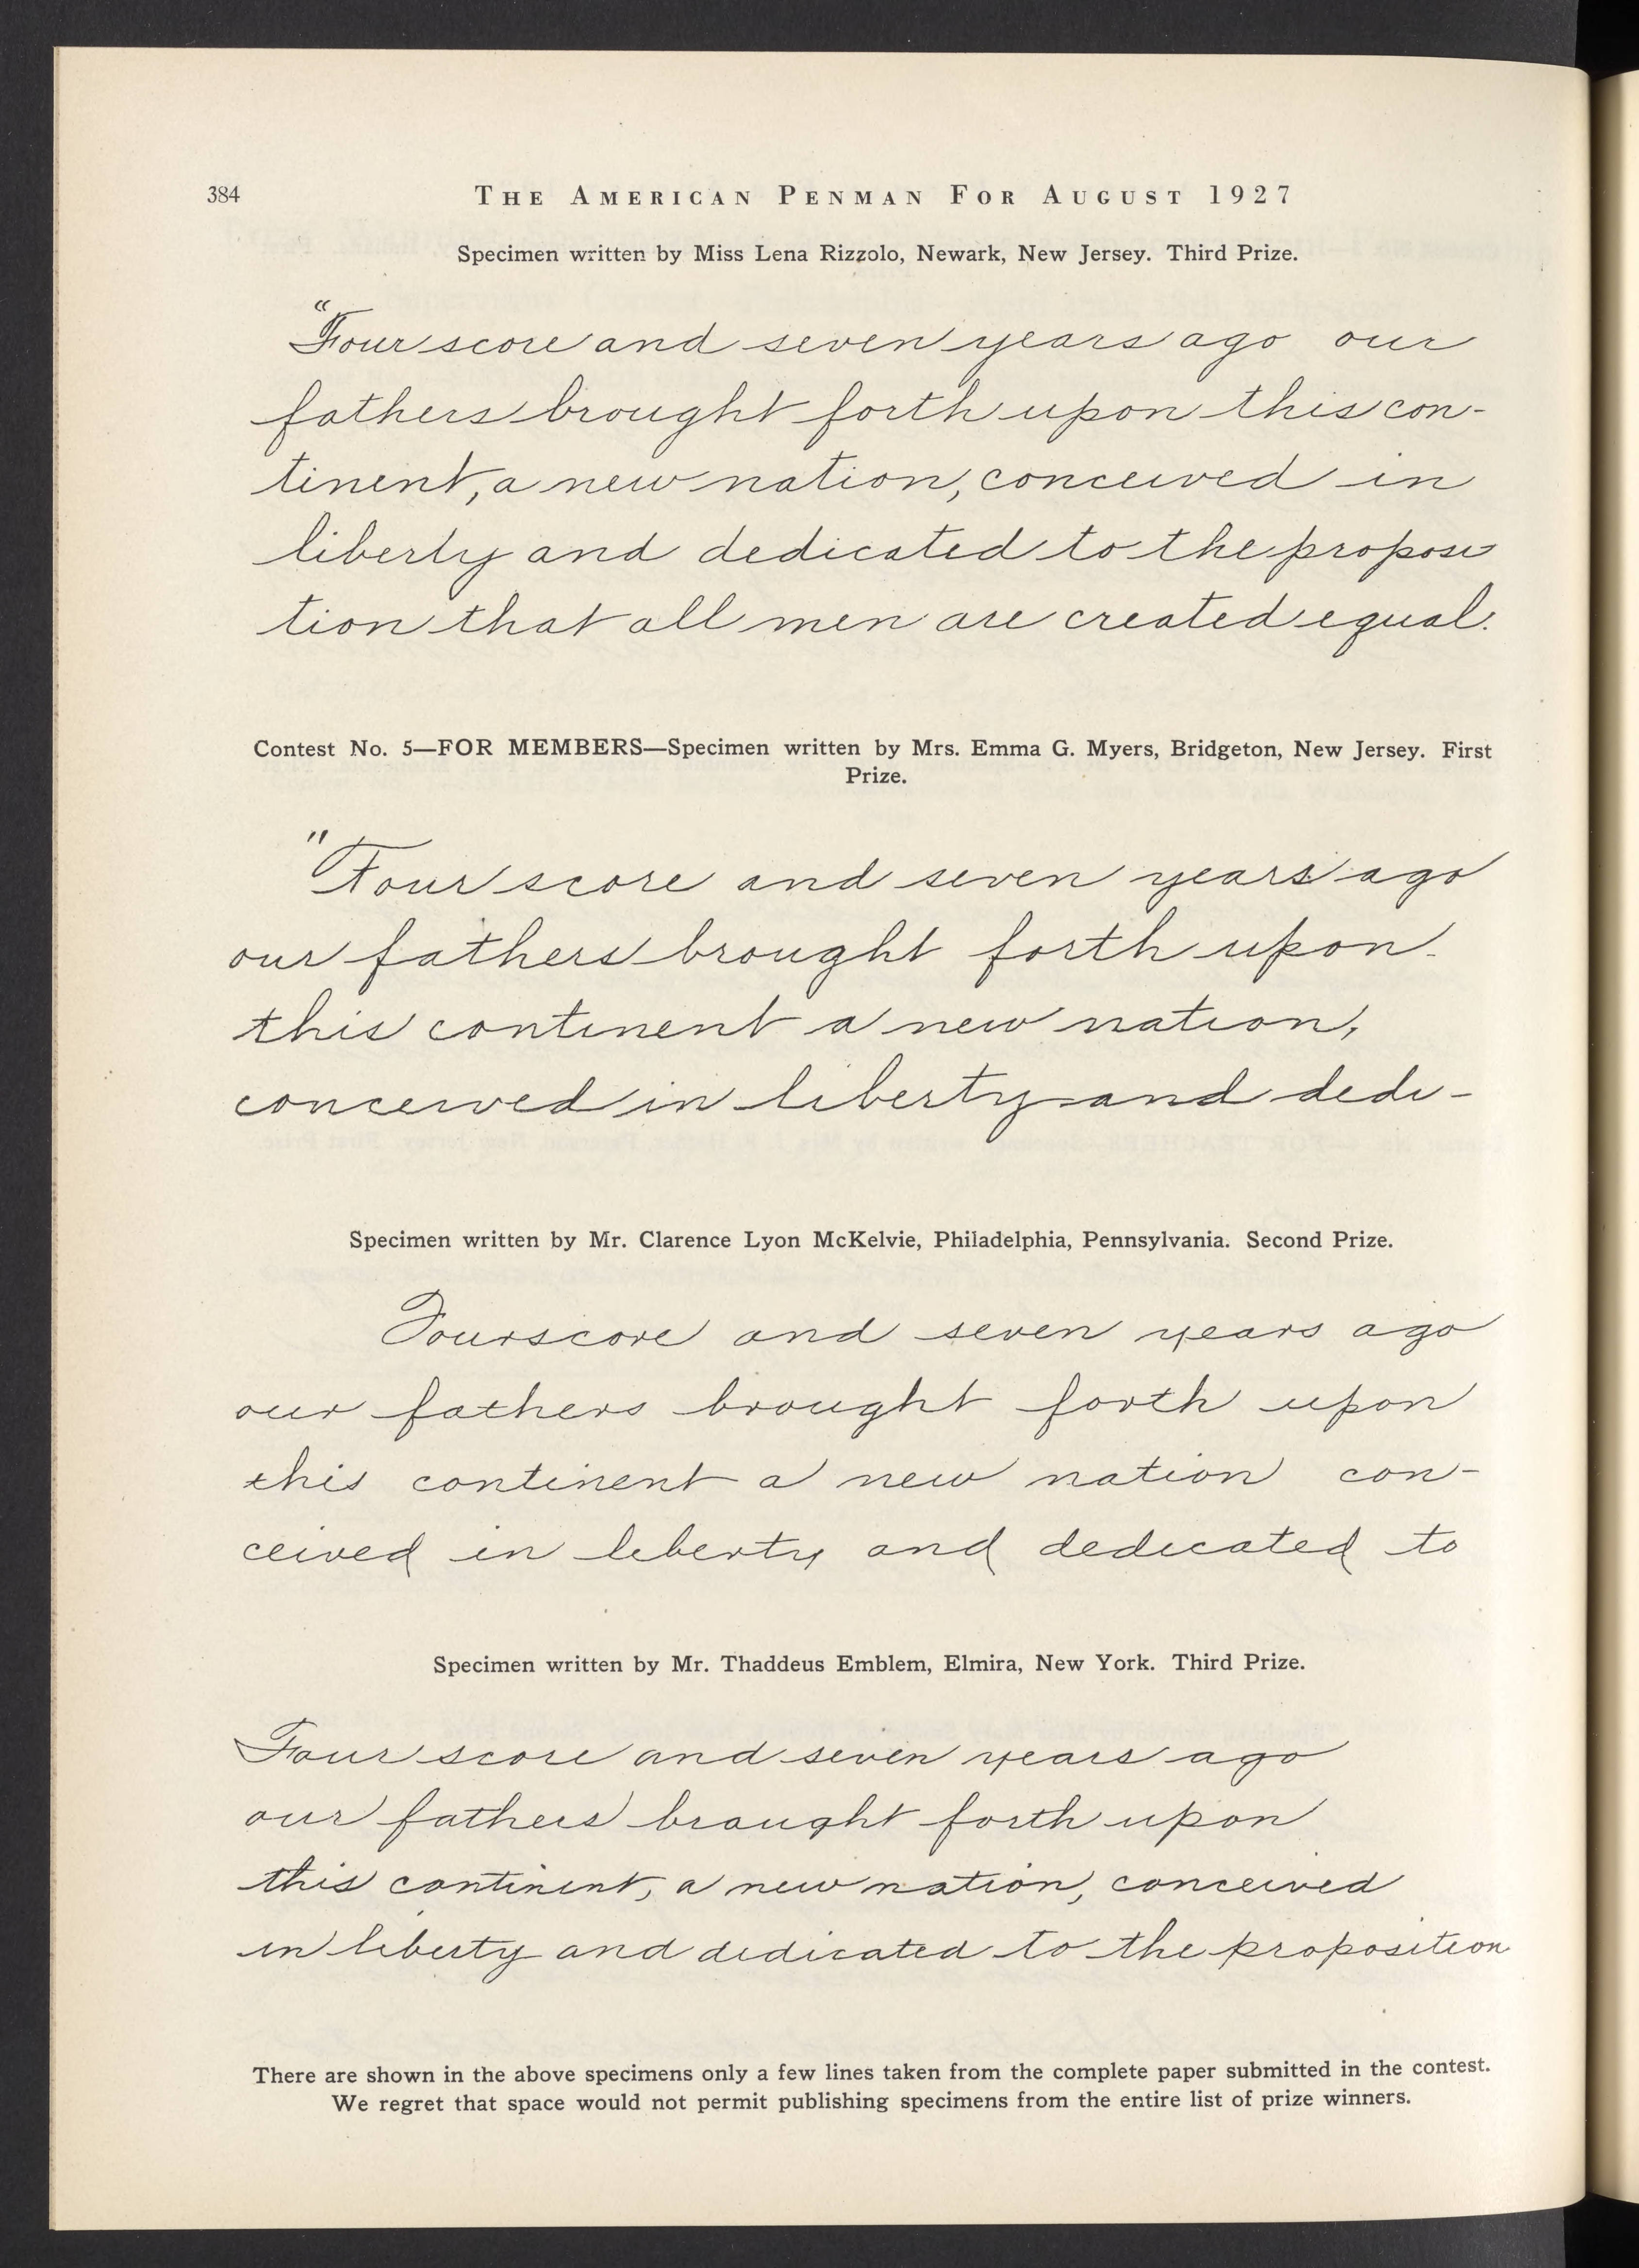 384
THE AMERICAN PENMAN FOR AUGUST 1927
Specimen written by Miss Lena Rizzolo, Newark, New Jersey. Third Prize.
"Four score and seven years ago our
fathers brought forth upon this con-
tinent, a new nation, conceived in
liberty and dedicated to the proposi
tion that all men are created equal.
Contest No. 5—FOR MEMBERS—Specimen written by Mrs. Emma G. Myers, Bridgeton, New Jersey. First
Prize.
"Four score and seven years ago
our fathers brought forth upon
this continent a new nation,
conceived in liberty and dedi-
Specimen written by Mr. Clarence Lyon McKelvie, Philadelphia, Pennsylvania. Second Prize.
Fourscore and seven years ago
our fathers brought forth upon
this continent a new nation con-
ceived in liberty and dedicated to
Specimen written by Mr. Thaddeus Emblem, Elmira, New York. Third Prize.
Four score and seven years ago
our fathers brought forth upon
this continent, a new nation, conceived
in liberty and dedicated to the proposition
There are shown in the above specimens only a few lines taken from the complete paper submitted in the contest.
We regret that space would not permit publishing specimens from the entire list of prize winners.